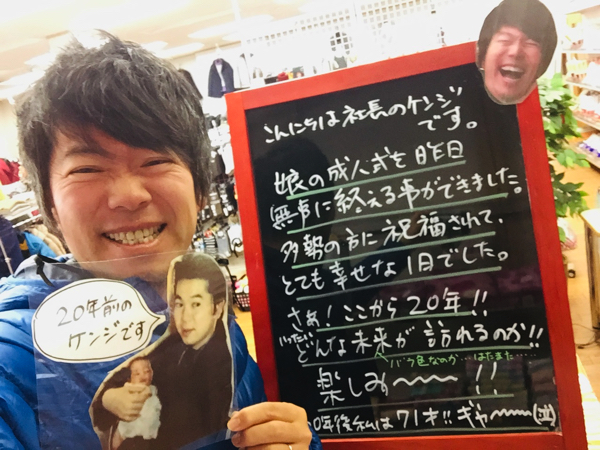 20年前の
ケンジです
こんにちは社長のケンジ
です。
娘の成人式を昨日
無事に終える事ができました。
多勢の方に祝福されて、
とても幸せな1日でした。
さぁ!ここから20年!!
いったい
どんな未来が訪れるのか!!
バラ色なのか…はたまた……
楽しみ〜〜〜!!
0年後私は71才!!ギャ〜〜〜(泣)